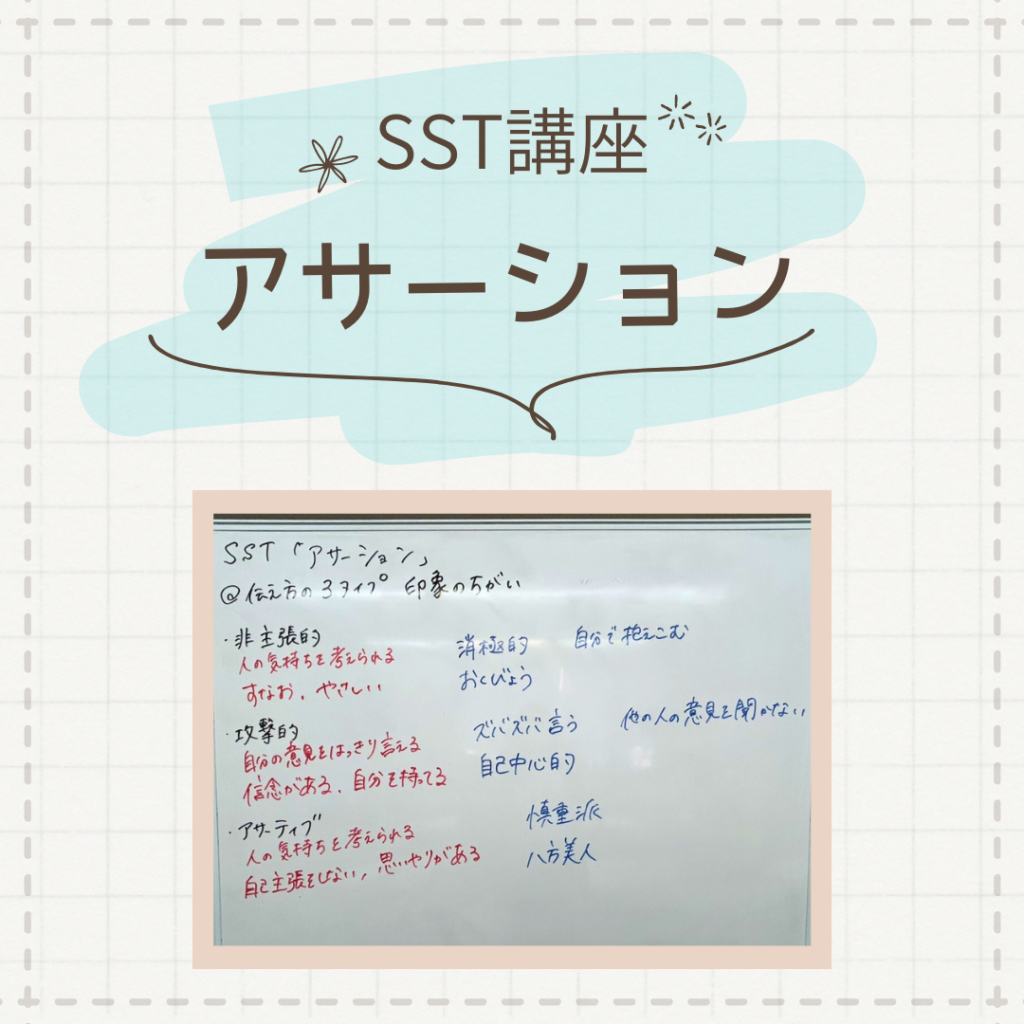 SST講座
アサーション
SST「アサーション」
@伝え方の3タイプ 印象のちがい
・非主張的
人の気持ちを考えられる
すなお、やさしい
消極的 自分で抱えこむ
おくびょう
・攻撃的
自分の意見をはっきり言える
信念がある、自分を持ってる
ズバズバ言う 他の人の意見を聞かない
自己中心的
・アサーティブ
人の気持ちを考えられる
自己主張をしない、思いやりがある
慎重派
八方美人